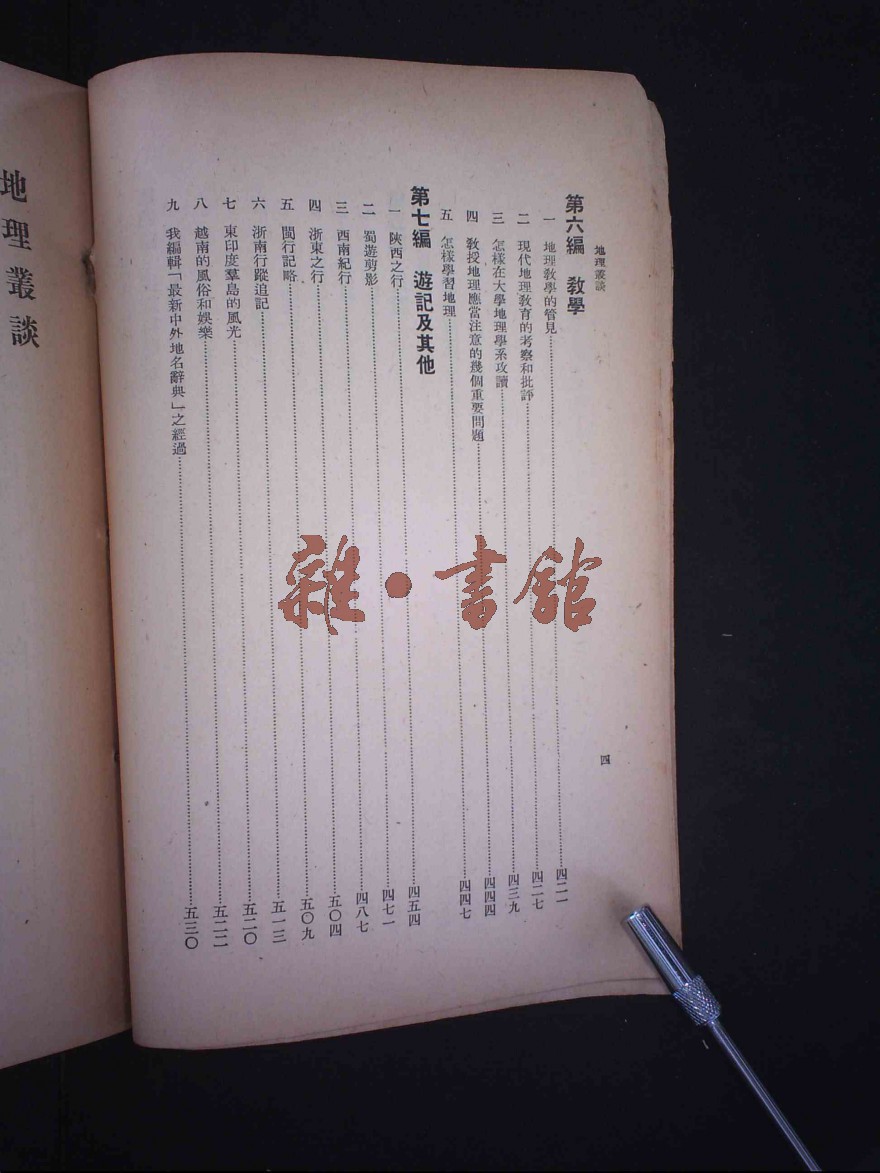 地理叢談
第六編　教學
一　地理教學的管見……四二一
二　現代地理教育的考察和批評……四二七
三　怎樣在大學地理學系攻讀……四三九
四　教授地理應當注意的幾個重要問題……四四四
五　怎樣學習地理……四四七
第七編　遊記及其他
一　陝西之行……四五四
二　蜀遊剪影……四七一
三　西南紀行……四八七
四　浙東之行……五〇四
五　閩行記略……五〇九
六　浙南行蹤追記……五一三
七　東印度羣島的風光……五二〇
八　越南的風俗和娛樂……五二二
九　我編輯「最新中外地名辭典」之經過……五三〇
四
地理叢談
雜·書館